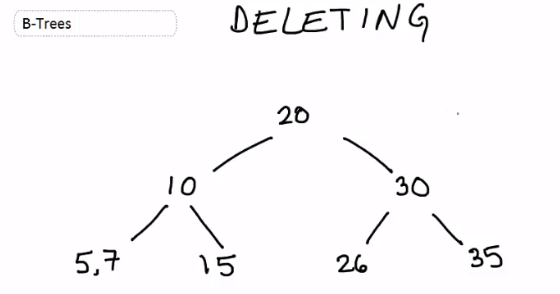 B-Trees
DELETING
20
10 30
5,7 15 26 35